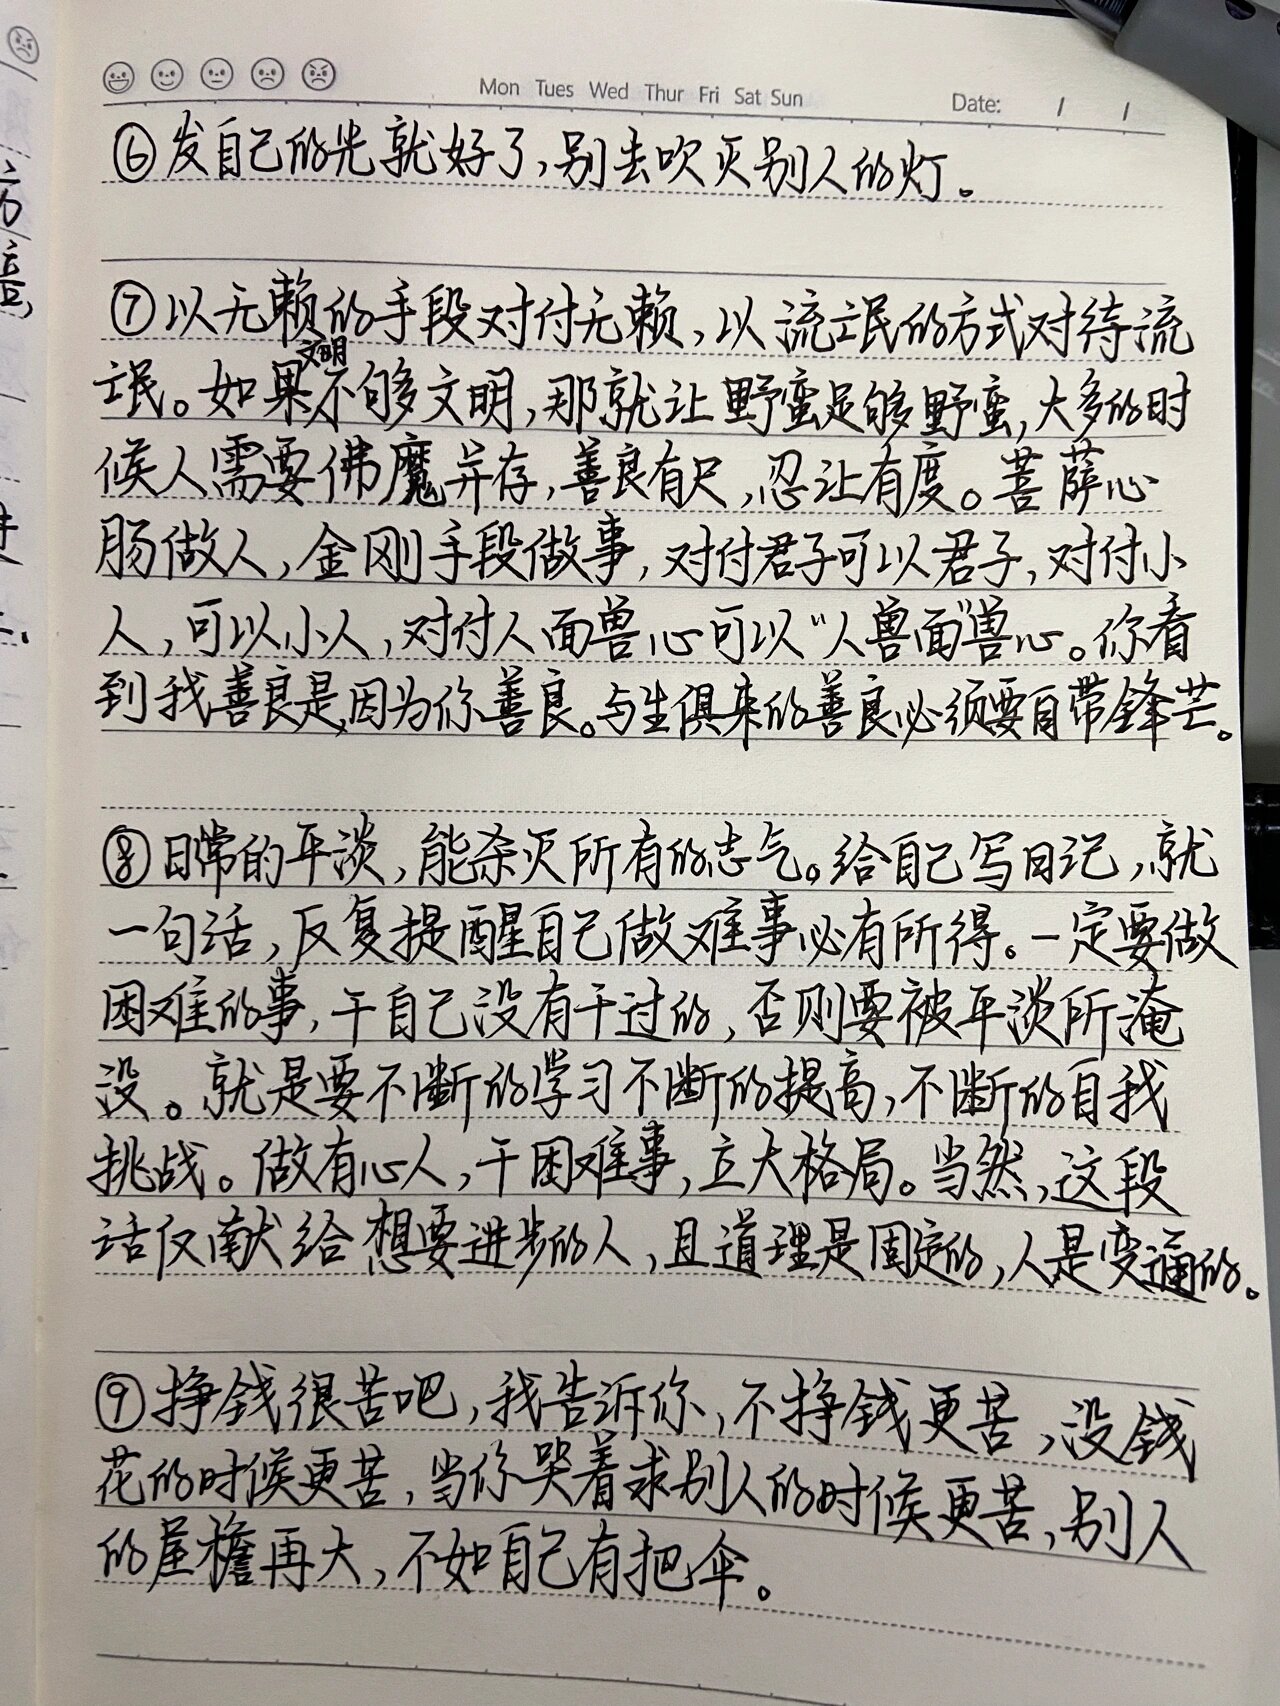 Mon Tues Wed Thur Fri Sat Sun Date: / /
⑥发自己的光就好了,别去吹灭别人的灯。
⑦以无赖的手段对付无赖,以流氓的方式对待流
氓。如果文明不够文明,那就让野蛮足够野蛮,大多的时
候人需要佛魔并存,善良有尺,忍让有度。菩萨心
肠做人,金刚手段做事,对付君子可以君子,对付小
人,可以小人,对付人面兽心可以“人兽面”兽心。你看
到我善良是,因为你善良。与生俱来的善良必须要自带锋芒。
⑧日常的平淡,能杀灭所有的志气。给自己写日记,就
一句话,反复提醒自己做难事必有所得。一定要做
困难的事,干自己没有干过的,否则要被平淡所淹
没。就是要不断的学习不断的提高,不断的自我
挑战。做有心人,干困难事,立大格局。当然,这段
话仅献给想要进步的人,且道理是固定的,人是变通的。
⑨挣钱很苦吧,我告诉你,不挣钱更苦,没钱
花的时候更苦,当你哭着求别人的时候更苦,别人
的屋檐再大,不如自己有把伞。